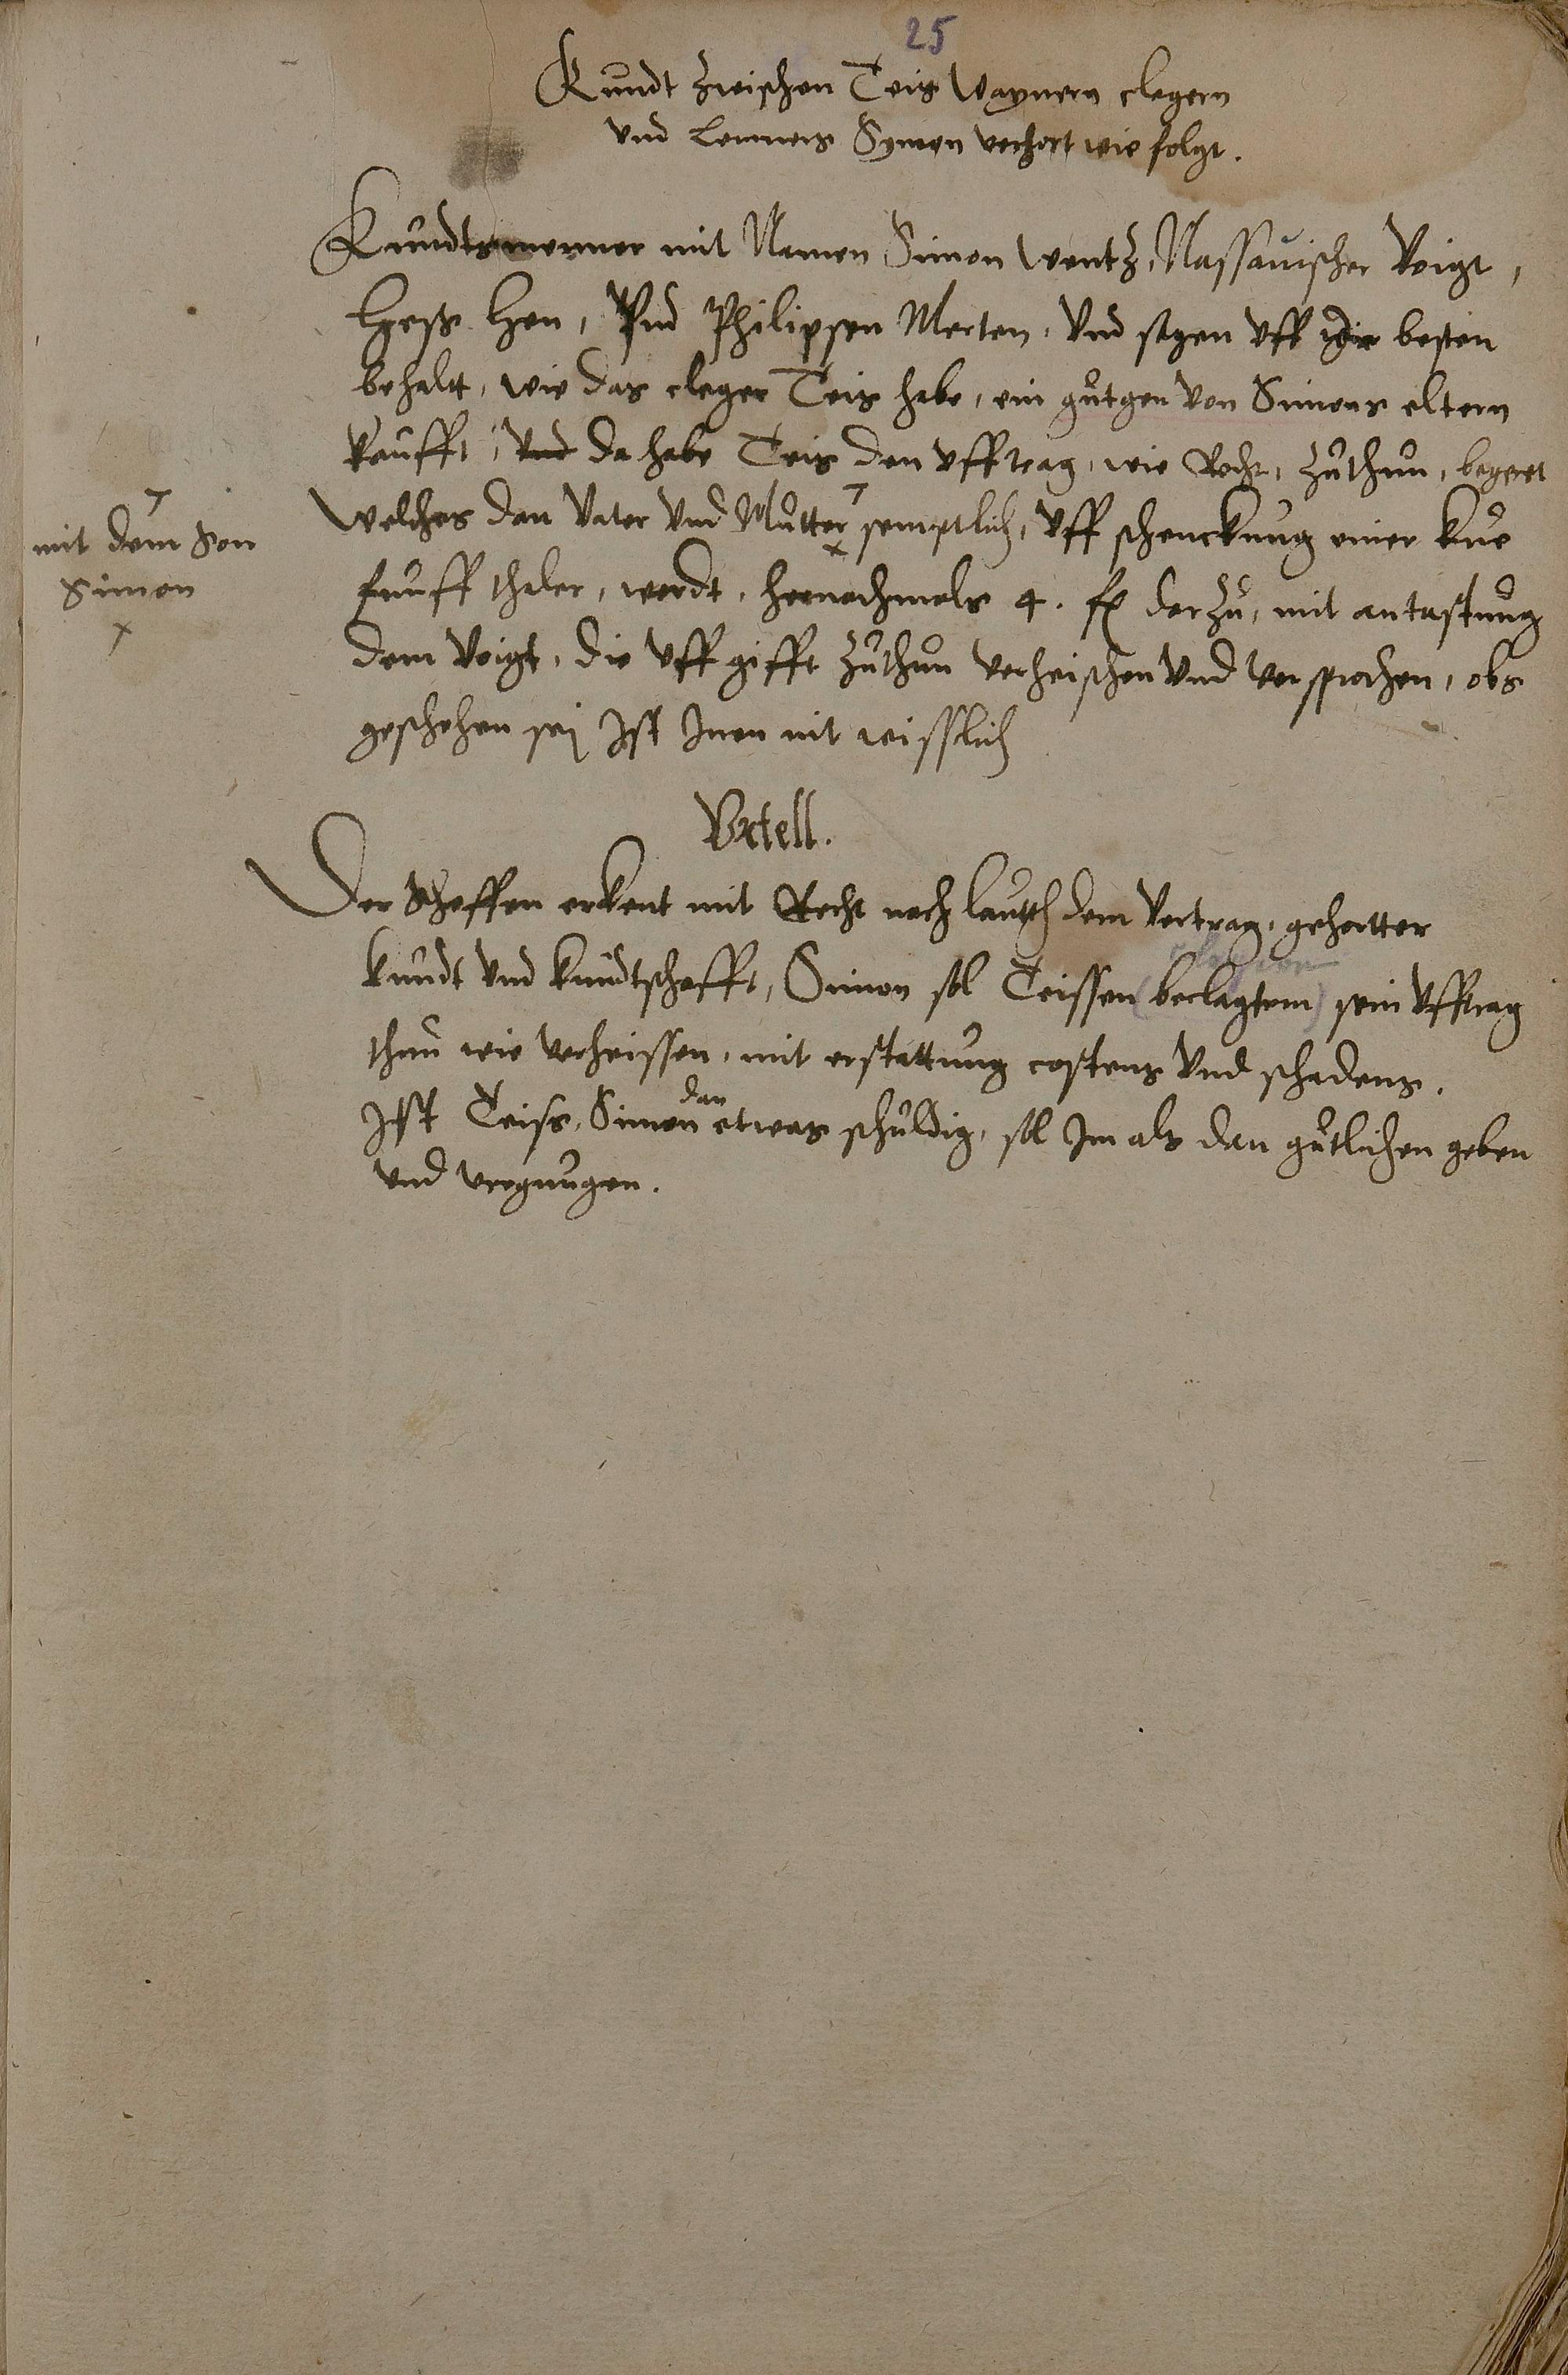 25
Kundt zwischen Teis Waynern clegern
vnd Lenners Symon verhort wie folgt.
Kundtsmenner mit Namen Simon Wentz, Nassauischer Voigt,
Heß Hen, Vnd Philipsen Merten, Vnd sagen vff ihr besten
behaltt, wie das cleger Teis habe, ein gutgen von Simons eltern
kaufft, vnd da habe Teis den vfftrag, wie Recht, zuthun, begeret
Welches dan Vater vnd Mutter semptlich, vff schenckung einer kue
mit dem Son
Simon
funff thaler, werdt, hernachmals 4. fl darzu, mit antastung
dem Voigt, die vffgifft zuthun verheischen vnd versprochen, obs
geschehen sej Jst Jnen nit wisslich
Vrtell.
Der Scheffen erkent mit Recht nach lauth dem Vertrag, gehortter
kundt vnd kundtschafft, Simon sol Teissen (beclagtem) sein vfftrag
thun wie verheissen, mit erstattung costens vnd schadens.
dan
Jst Teiss, Simon etwas schuldig, sol Jm als dan gutlichen geben
vnd vergnugen.